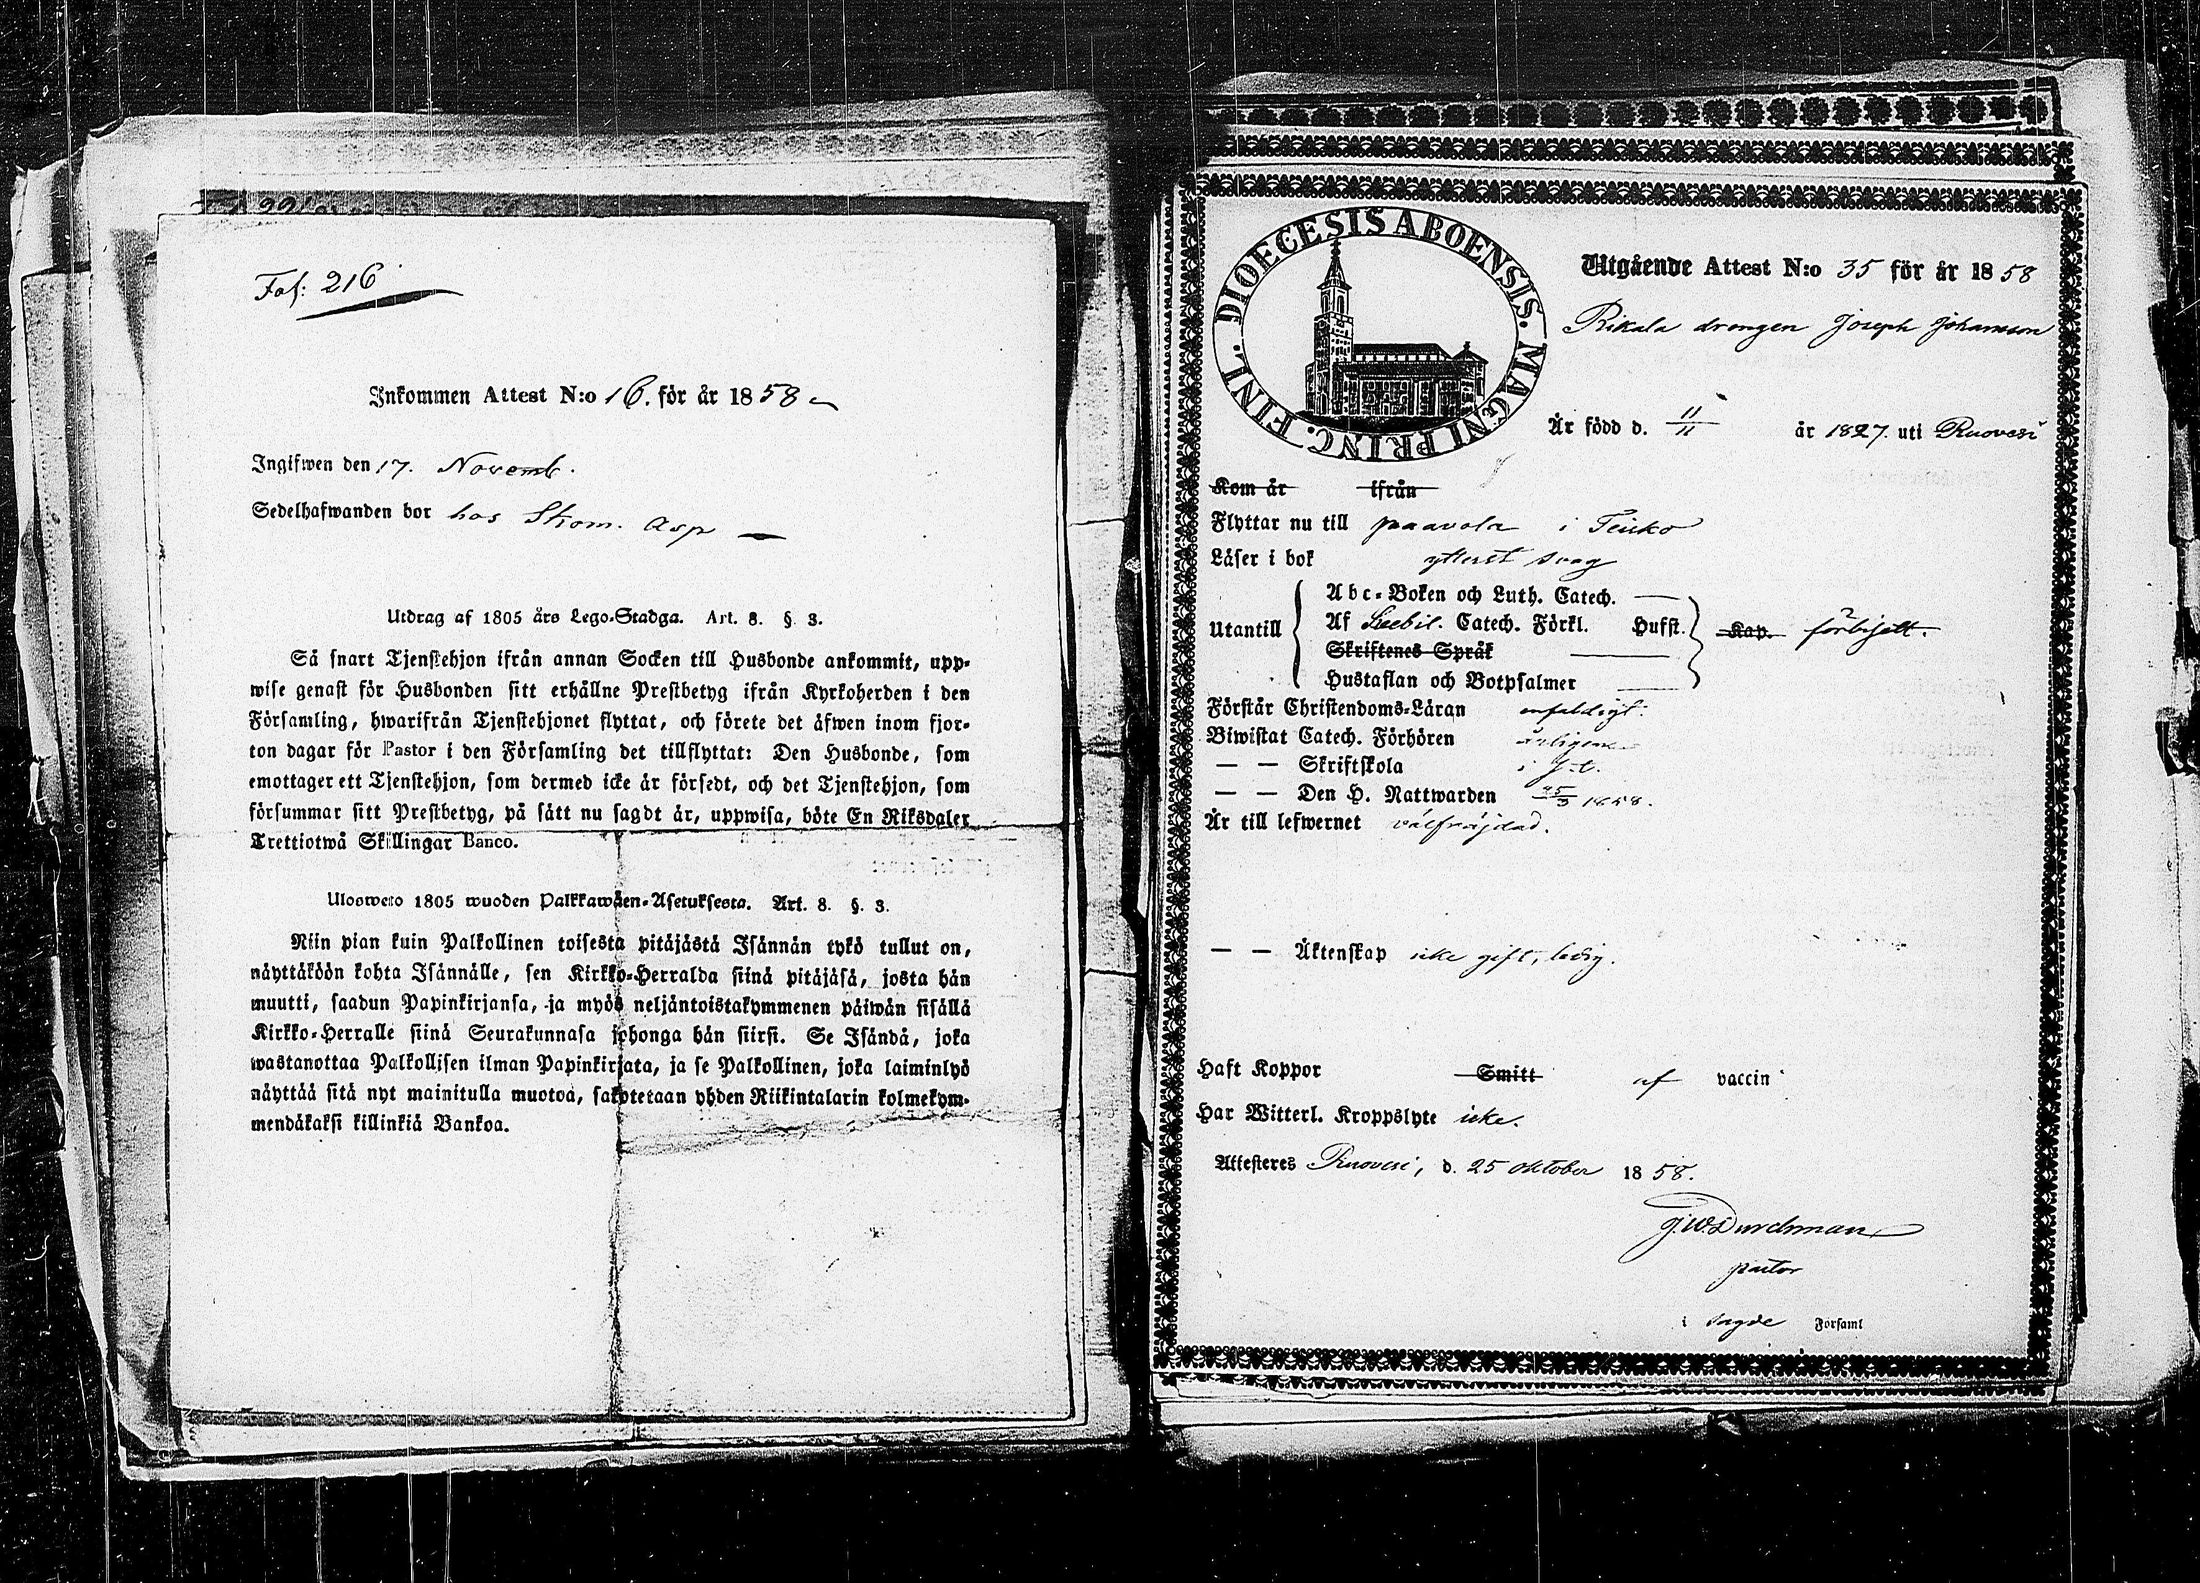 Fol: 216
Inkommen Attest N:o 16. för år 1858
Ingifwen den 17. Novemb.
Sedelhafwanden bor hos Skom. Asp
Utdrag af 1805 års Lego-Stadga. Art. 8. §. 3.
Så snart Tjenstehjon ifrån annan Socken till Husbonde ankommit, upp-
wise genast för Husbonden sitt erhållne Prestbetyg ifrån Kyrkoherden i den
Församling, hwarifrån Tjenstehjonet flyttat, och förete det äfwen inom fjor-
ton dagar för Pastor i den Församling det tillflyttat: Den Husbonde, som
emottager ett Tjenstehjon, som dermed icke är försedt, och det Tjenstehjon, som
försummar sitt Prestbetyg, på sätt nu sagdt är, uppwisa, böte En Riksdaler
Trettiotwå Skillingar Banco.
Ulosweto 1805 wuoden Palkkawäen-Asetuksesta. Art. 8. §. 3.
Niin pian kuin Palkollinen toisesta pitäjästä Isännän tykö tullut on,
näyttäköön kohta Isännälle, sen Kirkko-Herralda siinä pitäjäsä, josta hän
muutti, saadun Papinkirjansa, ja myös neljäntoistakymmenen päiwän sisällä
Kirkko-Herralle siinä Seurakunnasa johonga hän siirsi. Se Isändä, joka
wastanottaa Palkollisen ilman Papinkirjata, ja se Palkollinen, joka laiminlyö
näyttää sitä nyt mainitulla muotoa, sakotetaan yhden Riikintalarin kolmekym-
mendäkaksi killinkiä Bankoa.
DIOECESIS ABOENSIS. MAGNI PRINC. FINL.
Utgående Attest N:o 35 för år 1858
Rikala drengen Joseph Johansson
Är född d. 11/11 år 1827. uti Ruovesi
Kom år ifrån
Flyttar nu till paavola i Teisko
Läser i bok ytterst svag
Abc-Boken och Luth. Catech.
Utantill Af Seebil. Catech. Förkl. Hufst. Kap. förbisett.
Skriftenes Språk
Hustaflan och Botpsalmer
Förstår Christendoms-Läran enfaldigt.
Biwistat Catech. Förhören årligen
— — Skriftskola
— — Den H. Nattwarden 25/3 1858.
Är till lefwernet välfräjdad.
— — Äktenskap icke gift, ledig.
Haft Koppor Smitt af vaccin
Har Witterl. Kroppslyte icke.
Attesteres Ruovesi, d. 25 oktober 1858.
G.W. Durchman
pastor
i sagde Forsaml